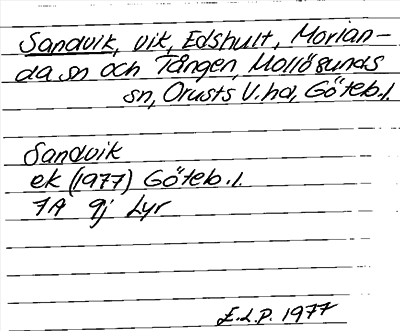 Sandvik, vik, Edshult, Morian-
da sn och Tången, Mollösunds
sn, Orusts V.hd, Göteb.l.
Sandvik
ek (1977) Göteb.l.
7A 9j Lyr
E.L.P. 1977